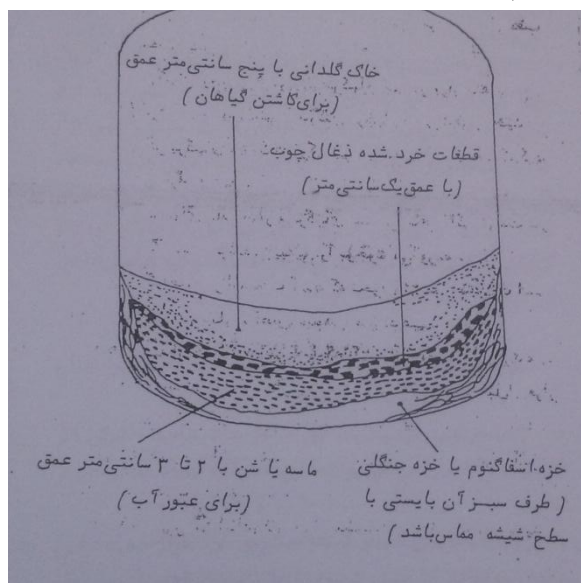 خاک گلدانی با پنج سانتی‌متر عمق
(برای کاشتن گیاهان)
قطعات خرد شده ذغال چوب
(با عمق یک سانتی‌متر)
ماسه یا شن با ۲ تا ۳ سانتی‌متر عمق
(برای عبور آب)
خزه اسفاگنوم یا خزه جنگلی
(طرف سبز آن بایستی با
سطح شیشه مماس باشد)